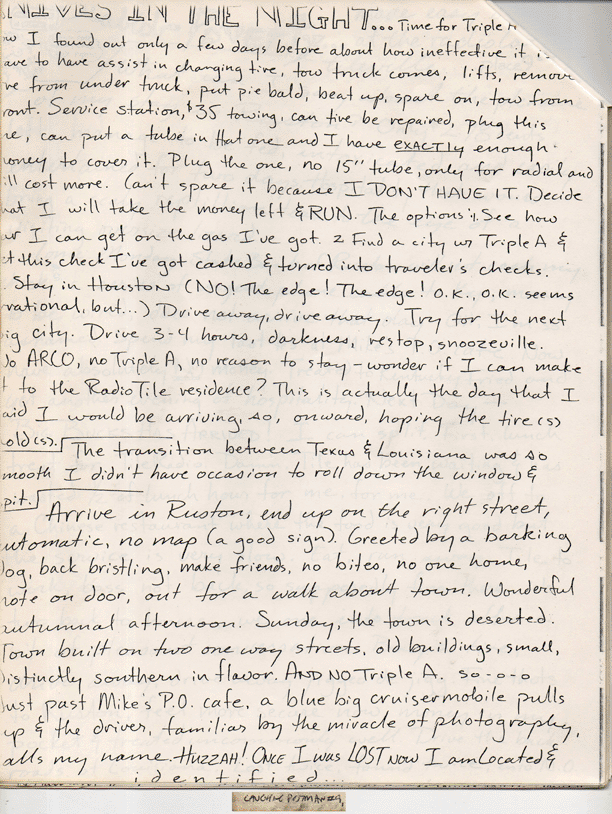 NIVES IN THE NIGHT... Time for Triple
ow I found out only a few days before about how ineffective it i
ave to have assist in changing tire, tow truck comes, lifts, remove
re from under truck, put pie bald, beat up, spare on, tow from
ront. Service station, $35 towing, can tire be repaired, plug this
ne, can put a tube in that one and I have EXACTLY enough
oney to cover it. Plug the one, no 15" tube, only for radial and
ill cost more. Can't spare it because I DON'T HAVE IT. Decide
hat I will take the money left & RUN. The options: 1. See how
ar I can get on the gas I've got. 2 Find a city w/ Triple A &
et this check I've got cashed & turned into traveler's checks.
. Stay in Houston (NO! The edge! The edge! O.K., O.K. seems
rational, but...) Drive away, drive away. Try for the next
ig city. Drive 3-4 hours, darkness, restop, snoozeville.
No ARCO, no Triple A, no reason to stay - wonder if I can make
t to the RadioTile residence? This is actually the day that I
aid I would be arriving, so, onward, hoping the tire(s)
old(s). The transition between Texas & Louisiana was so
mooth I didn't have occasion to roll down the window &
pit. Arrive in Ruston, end up on the right street,
utomatic, no map (a good sign). Greeted by a barking
og, back bristling, make friends, no bites, no one home,
note on door, out for a walk about town. Wonderful
autumnal afternoon. Sunday, the town is deserted.
Town built on two one way streets, old buildings, small,
distinctly southern in flavor. AND NO Triple A. so-o-o
Just past Mike's P.O. cafe, a blue big cruisermobile pulls
up & the driver, familiar by the miracle of photography,
alls my name. HUZZAH! ONCE I WAS LOST NOW I am Located &
identified...